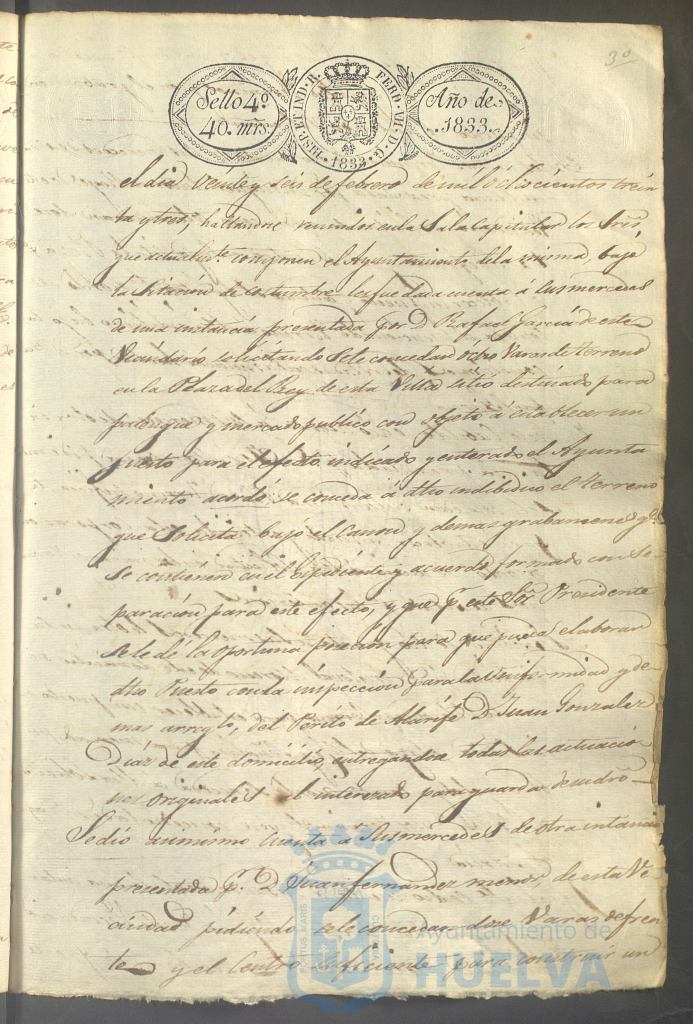 30
Sello 4º
40. mrs.
HISP. ET IND. R. FERD. VII. D. G.
1833
Año de
1833.
el dia veinte y seis de febrero de mil ochocientos trein
ta y tres, hallandose reunidos en la Sala Capitular los Sres.
que actualmte. componen el Ayuntamiento de la misma bajo
la citacion de costumbre les fue dada cuenta á sus mercedes
de una instancia presentada por D. Rafael Garcia de este
Vecindario solicitando se le concedan ocho Varas de terreno
en la Plaza del Rey de esta Villa sitio destinado para
y mercado publico con objeto á establecer un
puesto para el efecto indicado y enterado el Ayunta
miento acordó se conceda á dho indibiduo el terreno
que solicita bajo el Canon y demas grabamenes qe.
se contienen en el Expediente y acuerdo formado con se
paracion para este efecto, y que pr. este Sor. Presidente
se le dé la oportuna posecion para que pueda elaborar
dho Puesto con la inspeccion para la uniformidad y de
mas arreglo, del Perito de Alarife D. Juan Gonzalez
Diaz de este domicilio entregandose todas las actuacio
nes originales al interesado para guarda de su dro
Se dió asimismo cuenta á sus mercedes de otra instancia
presentada pr. D. Juan Fernandez menor, de esta Ve
cindad pidiendo se le concedan doce Varas de fren
te y el Centro suficiente para construir un
PORTUS MARIS ET TERRAE CUSTODIA
Ayuntamiento de
HUELVA